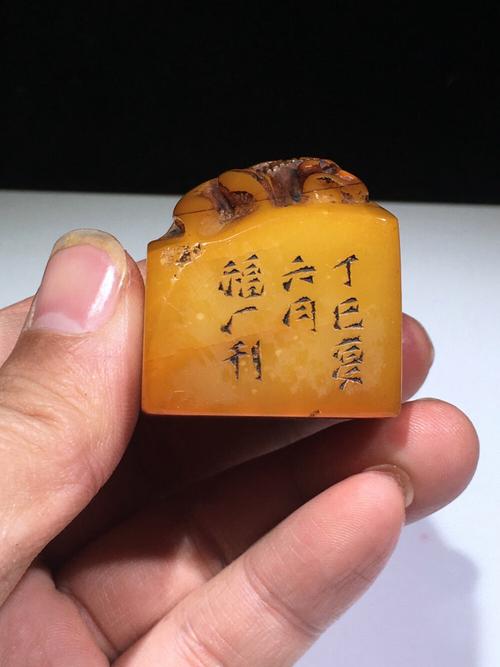 丁巳夏
六月
福厂刊